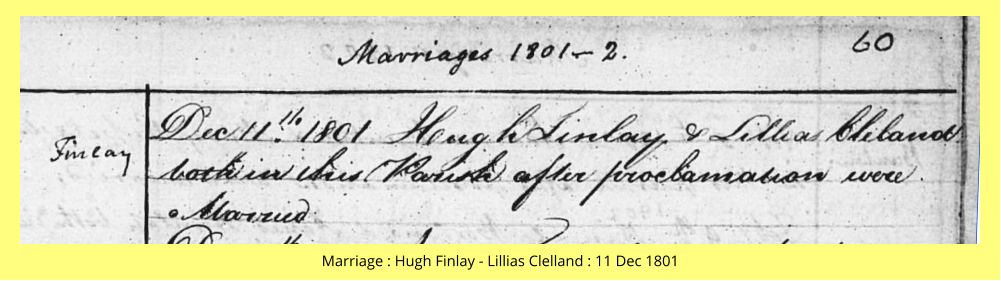 Marriages 1801-2.
60
Finlay
Dec 11.th 1801 Hugh Finlay & Lillias Cleland
both in this Parish after proclamation were
Married
Marriage : Hugh Finlay - Lillias Clelland : 11 Dec 1801